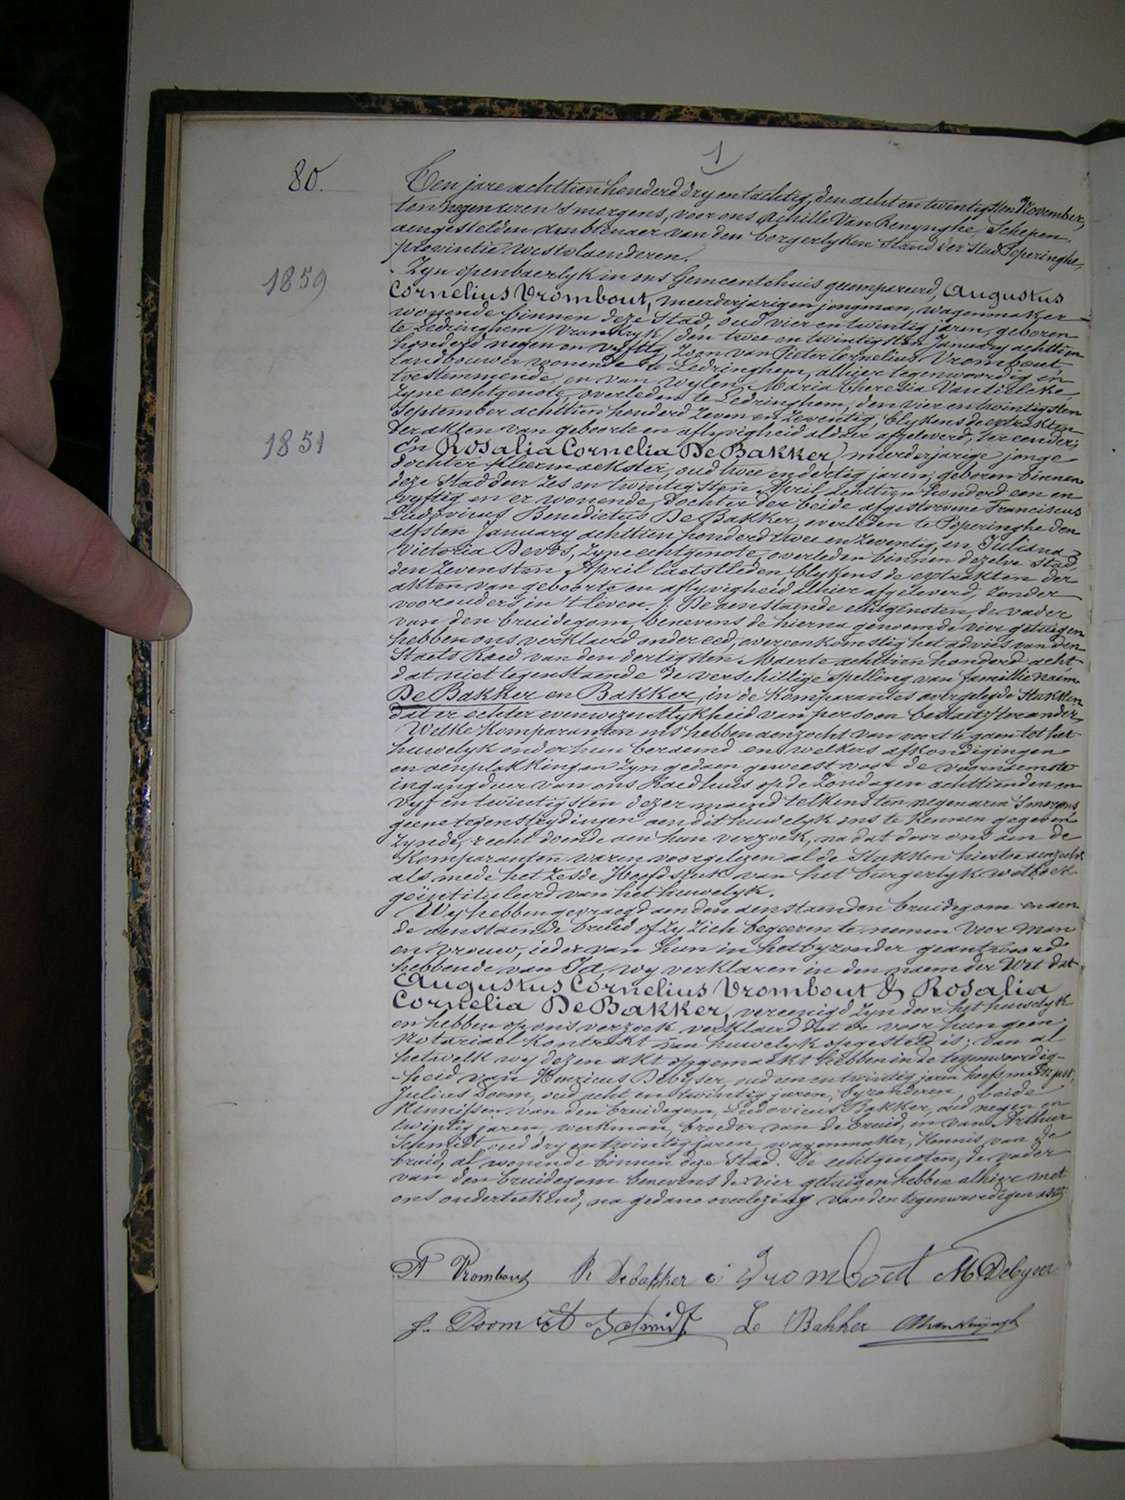 1
80.
Ten jare achttien honderd dry en tachtig, den acht en twintigsten November,
ten negen uren 's morgens, voor ons Achille Van Renynghe, Schepen,
aengestelden Ambtenaer van den borgerlyken Stand der stad Poperinghe,
provintie Westvlaenderen.
Zyn openbaerlyk in ons Gemeentehuis gekompareerd, Augustus
1859
Cornelius Vrombout, meerderjarigen jongman, wagenmaker
wonende binnen deze Stad, oud vier en twintig jaren, geboren
te Ledringhem /Vrankryk/ den twee en twintigsten January achttien
honderd negen en vyftig, Zoon van Pieter Cornelius Vrombout,
landbouwer wonende te Ledringhem, alhier tegenwoordig en
toestemmende, en van wylen Maria Theresia
zyne echtgenote, overleden te Ledringhem, den vier en twintigsten
September achttien honderd zeven en zeventig, blykens de extrakten
der akten van geboorte en aflyvigheid aldaer afgeleverd, ter eender;
1851
En Rosalia Cornelia De Bakker, meerderjarige jonge
dochter kleermaekster, oud twee en dertig jaren, geboren binnen
deze Stad den zes en twintigsten April achttien honderd een en
vyftig en er wonende, dochter der beide afgestorvene Franciscus
Ludovicus Benedictus De Bakker, overleden te Poperinghe den
elfsten January achttien honderd twee en zeventig, en Juliana
Victoria Devos, zyne echtgenote, overleden binnen dezelve Stad,
den zevensten April laetstleden, blykens de extrakten der
akten van geboorte en aflyvigheid alhier afgeleverd, zonder
voorouders in 't leven. De aenstaende echtgenoten, de vader
van den bruidegom, benevens de hierna genoemde vier getuigen
hebben ons verklaerd onder eed, overeenkomstig het advies van den
Staets Raed van den dertigsten Maerte achttien honderd acht
dat niet tegenstaende de verschillige spelling van familienaem
De Bakker en Bakker, in de komparantes overgelegde Stukken,
dat er echter evenwezentlykheid van persoon bestaet, ter ander,
Welke Komparanten ons hebben aenzocht van voort te gaen tot het
huwelyk onder hun beraemd en welkers afkondigingen
en aenplakkingen zyn gedaen geweest voor de voornaemste
ingangdeur van ons Raedhuis op de Zondagen achttienden en
vyf en twintigsten dezer maend telkens ten negen uren 's morgens
geene tegenstrydingen aen dit huwelyk ons te kennen gegeven
zynde, recht doende aen hun verzoek, nadat door ons aen de
Komparanten waren voorgelezen al de Stukken hiertoe
als mede het zesde Hoofdstuk van het burgerlyk wetboek
geïntituleerd van het huwelyk.
Wy hebben gevraegd aen den aenstaenden bruidegom en aen
de aenstaende bruid of zy zich begeeren te nemen voor man
en vrouw, ieder van hun in het byzonder geantwoord
hebbende van Ja, wy verklaren in den naem der Wet dat
Augustus Cornelius Vrombout & Rosalia
Cornelia De Bakker, vereenigd zyn door het huwelyk
en hebben op ons verzoek verklaerd dat er voor hun geen
Notariael Kontrakt van huwelyk opgesteld is; van al
hetwelk wy dezen akt opgemaekt hebben in de tegenwoordig-
-heid van Henricus Debyser, oud een en twintig jaren
Julius Doom, oud acht en twintig jaren, byzonderen, beide
Kennissen van den bruidegom, Ludovicus Bakker, oud negen en
twintig jaren, werkman, broeder van de bruid, en van Arthur
Schmidt oud dry en twintig jaren, wagenmaker, Kennis van de
bruid, al wonende binnen deze Stad. De echtgenoten, de vader
van den bruidegom benevens de vier getuigen hebben alhier met
ons onderteekend, na gedane overlezing van den tegenwoordigen akt.
A Vrombout R Debakker Vrombout Debyser
J. Doom A Schmidt L Bakker AVanRenynghe